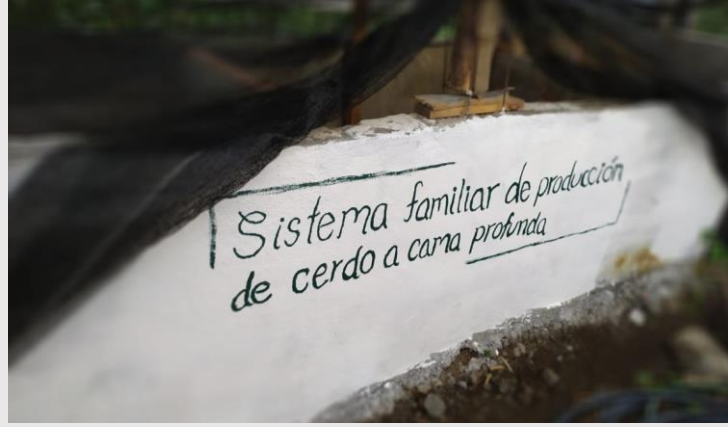 Sistema familiar de producción
de cerdo a cama profunda